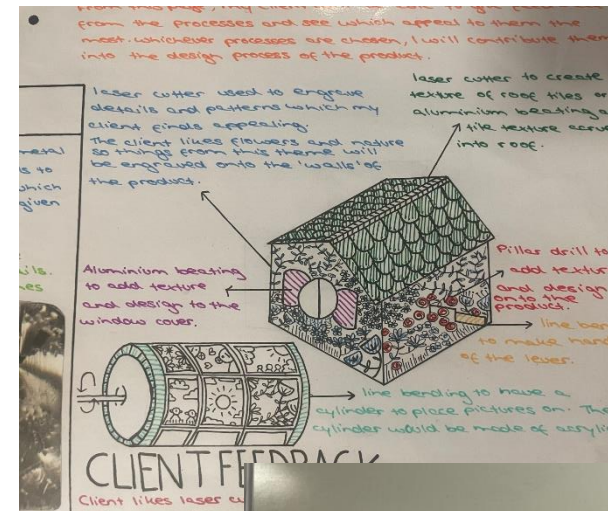 from the processes and see which appeal to them the
most. whichever processes are chosen, I will contribute them
into the design process of the product.
laser cutter used to engrave
details and patterns which my
client finds appealing.
The client likes flowers and nature
so things from this theme will
be engraved onto the 'walls' of
the product.
laser cutter to create
texture of roof tiles or
aluminium beating a
tile texture
into roof.
metal
is to
which
given
ils.
Aluminium beating
to add texture
and design to the
window cover.
Pillar drill to
add texture
and design
onto the
product.
line ben
to make hand
of the lever.
line bending to have a
cylinder to place pictures on. Thi
cylinder would be made of acryli
CLIENT FEEDBACK
Client likes laser cu